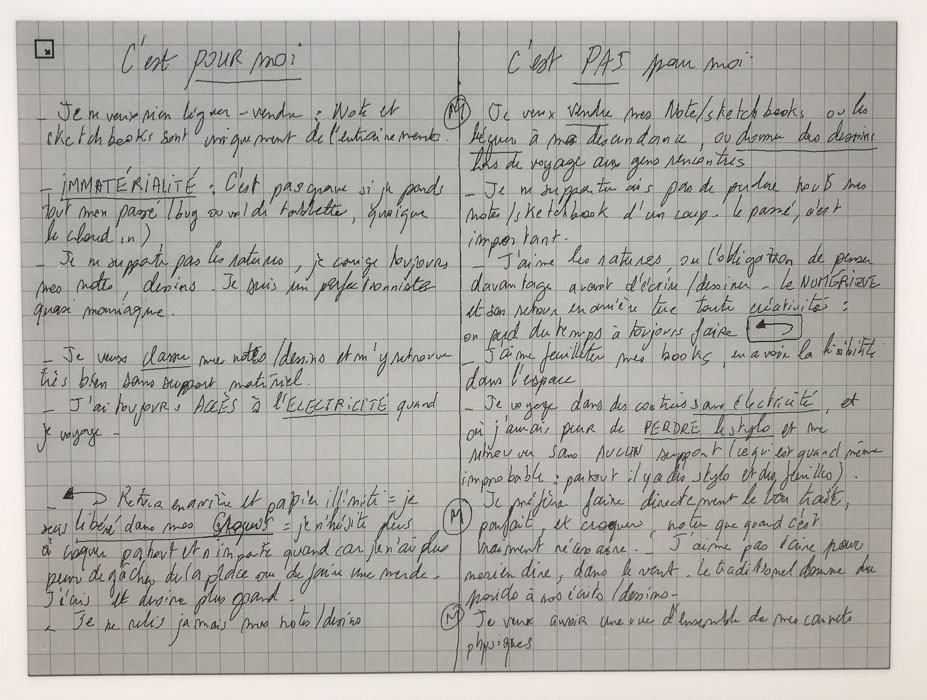 C'est POUR moi
- Je ne veux rien léguer - vendre : Note et
sketchbooks sont uniquement de l'entrainement.
- IMMATÉRIALITÉ : C'est pas grave si je perds
tout mon passé (bug ou vol de tablette, quoique
le cloud in)
- Je ne supporte pas les ratures, je corrige toujours
mes notes, dessins. Je suis un perfectionniste
quasi maniaque.
- Je veux classer mes notes/dessins et m'y retrouver
très bien sans support matériel.
- J'ai toujours ACCÈS à l'ELECTRICITÉ quand
je voyage -
- Retour en arrière et papier illimité = je
suis libéré dans mes croquis = je n'hésite plus
à croquer partout et n'importe quand car je n'ai plus
peur de gâcher de la place ou de faire une merde.
J'écris et dessine plus grand.
- Je ne relis jamais mes notes/dessins
C'est PAS pour moi
(M) Je veux vendre mes Note/sketchbooks ou les
léguer à ma descendance, ou donner des dessins
lors de voyage aux gens rencontrés
- Je ne supporterais pas de perdre tous mes
notes/sketchbook d'un coup - le passé, c'est
important.
- J'aime les ratures, ou l'obligation de penser
davantage avant d'écrire/dessiner - le NUMÉRIQUE
et son retour en arrière tue toute créativité :
on perd du temps à toujours faire
- J'aime feuilleter mes books, en avoir la lisibilité
dans l'espace
- Je voyage dans des contrées sans électricité, et
où j'aurais peur de PERDRE le stylo et me
retrouver sans AUCUN support (ce qui est quand même
improbable : partout il y a des stylo et des feuilles).
(M) Je préfère faire directement le bon trait,
parfait, et croquer, noter que quand c'est
vraiment nécessaire. J'aime pas écrire pour
ne rien dire, dans le vent. Le traditionnel donne du
poids à nos écrits/dessins -
(M) Je veux avoir une vue d'ensemble de mes carnets
physiques